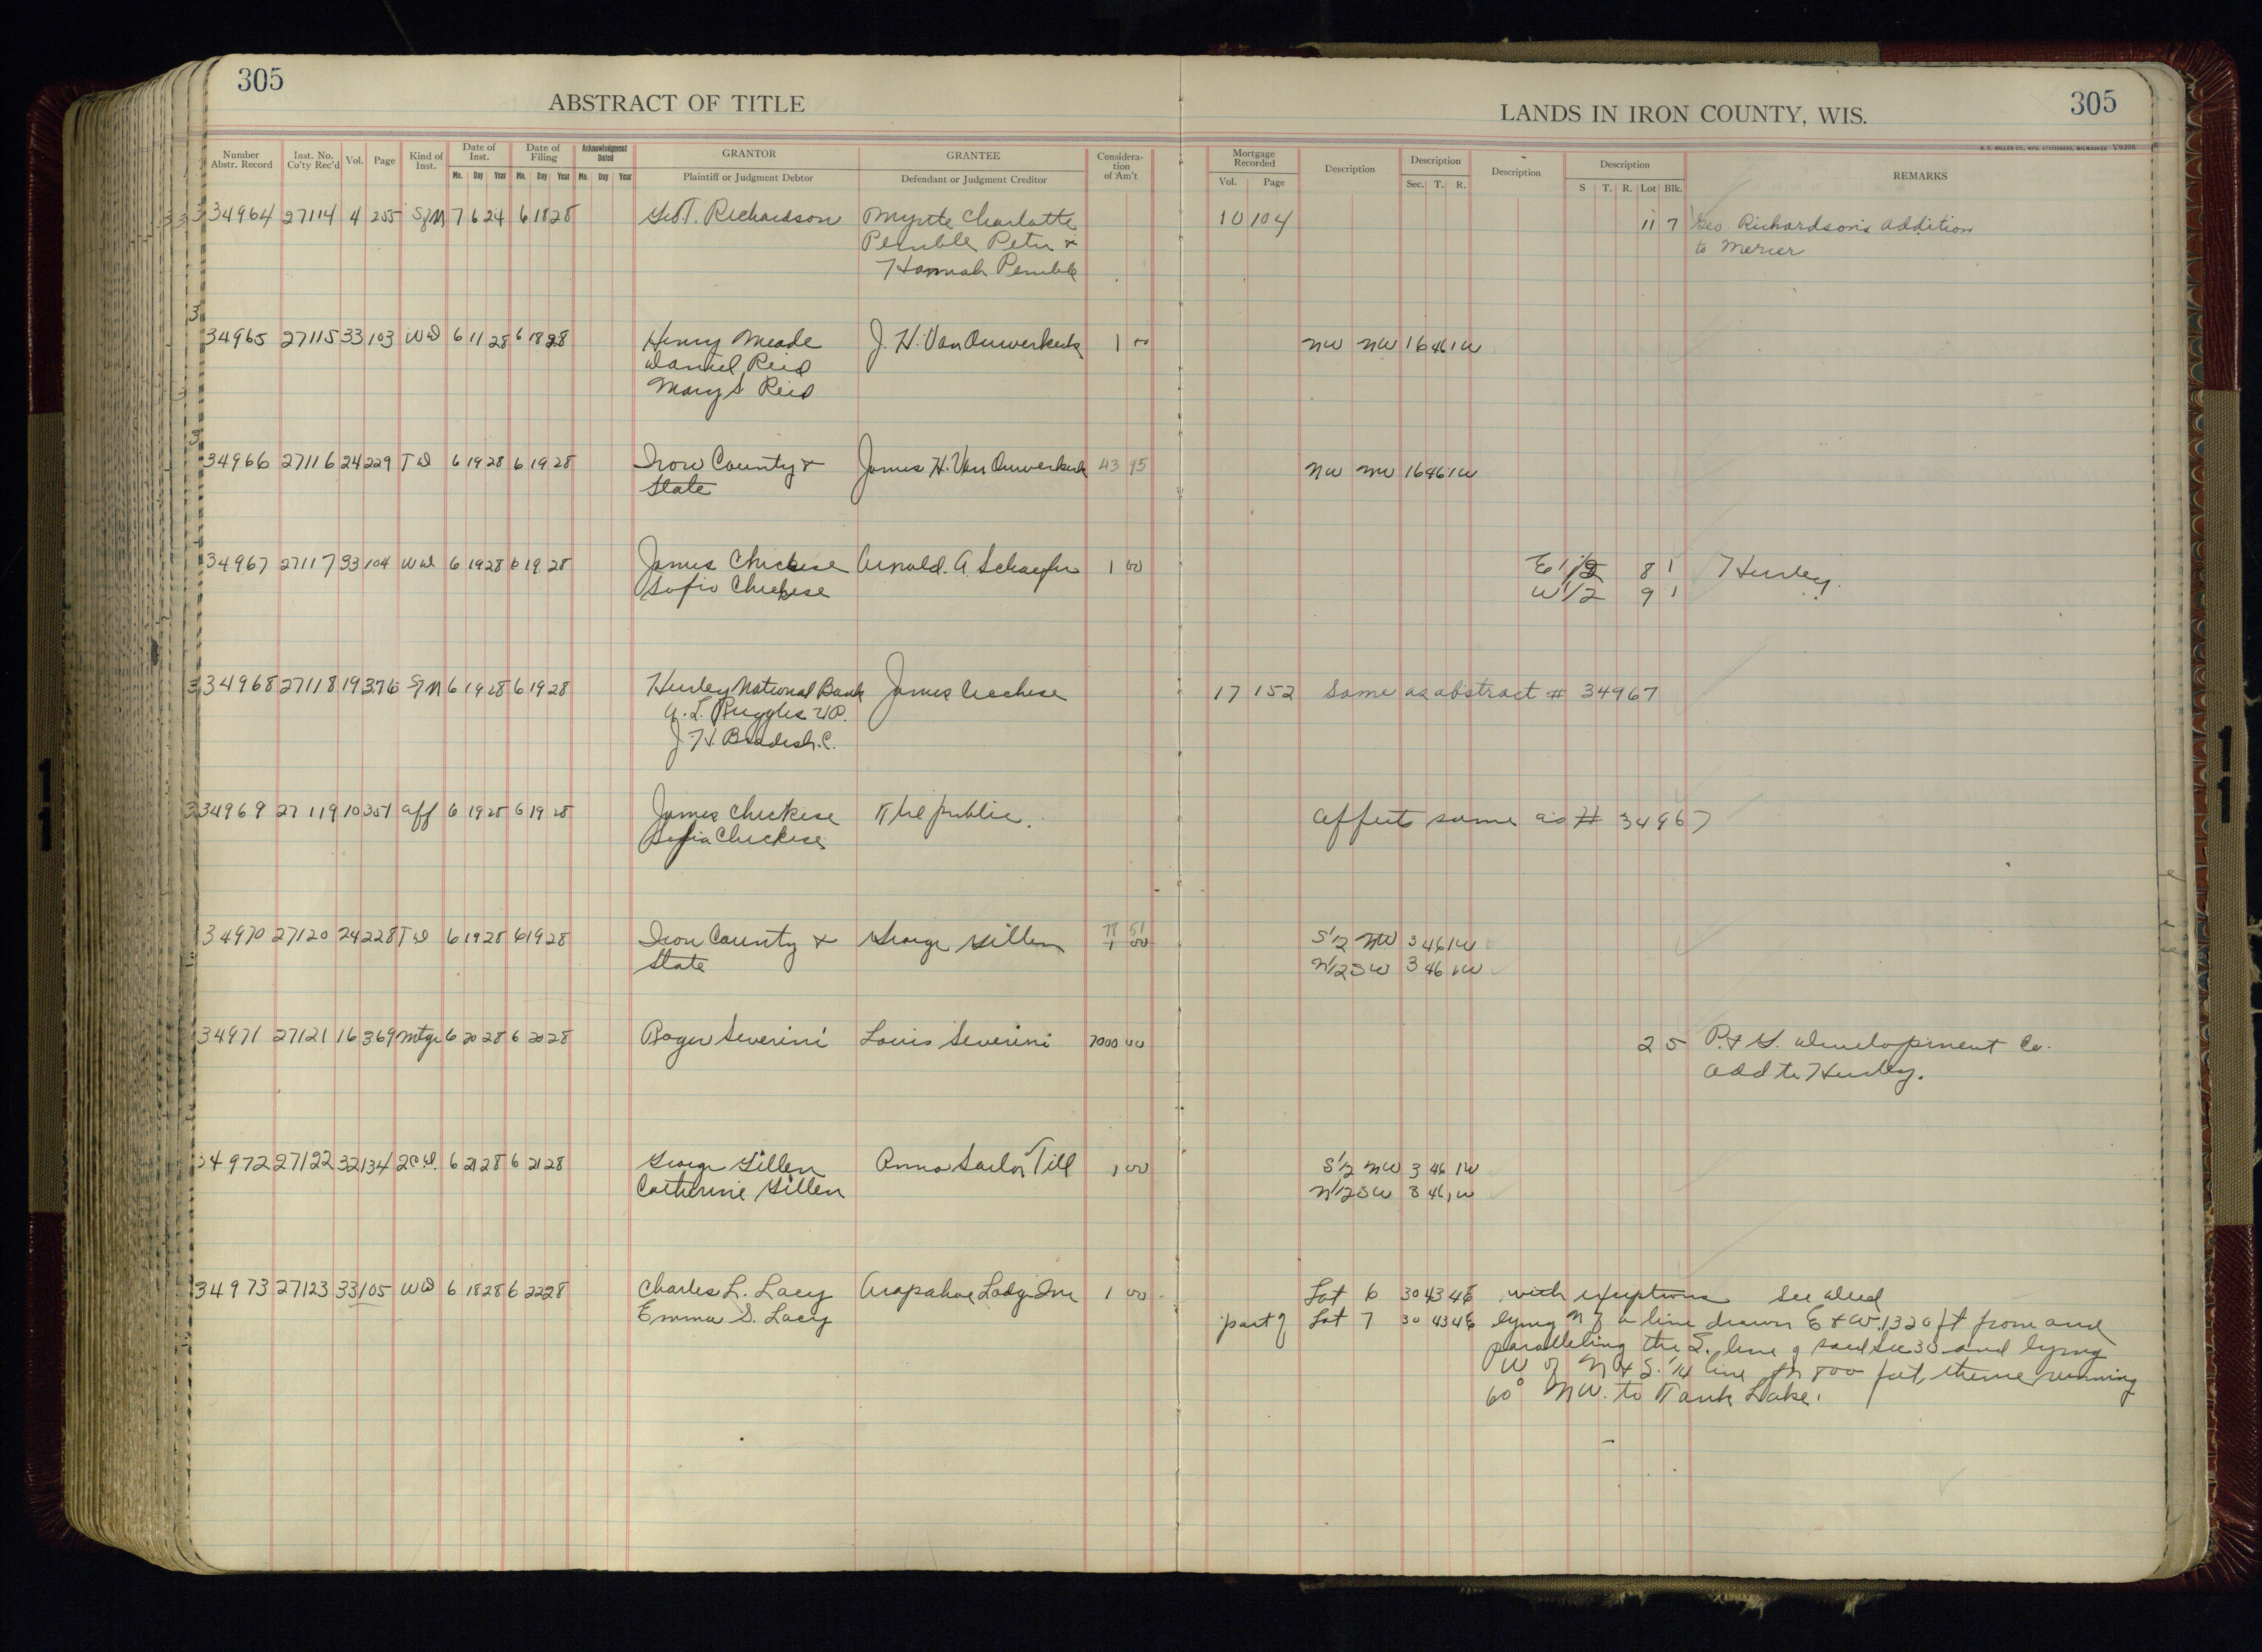 305
305
ABSTRACT OF TITLE
LANDS IN IRON COUNTY, WIS.
H. C. MILLER CO., MFG. STATIONERS, MILWAUKEE V9398
Number Abstr. Record Inst. No. Co'ty Rec'd Vol. Page Kind of Inst. Date of Inst. Mo. Day Year Date of Filing Mo. Day Year Acknowledgment Dated Mo. Day Year GRANTOR Plaintiff or Judgment Debtor GRANTEE Defendant or Judgment Creditor Considera-tion of Am't Mortgage Recorded Vol. Page Description Description Sec. T. R. Description Description S T. R. Lot Blk. REMARKS
34964 27114 4 255 7 6 24 6 18 28 Geo. T. Richardson Myrtle Charlotte 10 104 11 7 Geo. Richardson's Addition
Pemble Peter & to Mercer
Hannah Pemble
34965 27115 33 103 WD 6 11 28 6 18 28 Henry Meade J. H. Van Ouwerkerk 1 00 NW NW 16 46 1W
Daniel Reid
Mary S Reid
34966 27116 24 229 TD 6 19 28 6 19 28 Iron County & James H. Van Ouwerkerk 43 95 NW NW 16 46 1W
State
34967 27117 33 104 WD 6 19 28 6 19 28 James Chiekese Arnold. A. Schaefer 1 00 E 1/2 8 1 Hurley.
Sofia Chiekese W 1/2 9 1
34968 27118 19 376 6 19 28 6 19 28 Hurley National Bank James 17 152 Same as abstract # 34967
A. L. Ruggles VP.
J H. Bradish. C.
34969 27119 10 351 aff 6 19 28 6 19 28 James Chiekese The public. affects same as # 34967
Sofia Chiekese
34970 27120 24 228 TD 6 19 28 6 19 28 Iron County & George Gillen 78 51 S1/2 NW 3 46 1W
State 1 00 N1/2 SW 3 46 1W
34971 27121 16 369 mtge 6 20 28 6 20 28 Roger Severini Louis Severini 7000 00 2 5 P. & G. Development Co.
add to Hurley.
34972 27122 32 134 2CD. 6 21 28 6 21 28 George Gillen Anna Sailor Till 1 00 S1/2 NW 3 46 1W
Catherine Gillen N1/2 SW 3 46 1W
34973 27123 33 105 WD 6 18 28 6 22 28 Charles L. Lacy Arapahoe Lodge Inc 1 00 Lot 6 30 43 4E with exceptions See deed
Emma S. Lacy part of Lot 7 30 43 4E lying N of a line drawn E & W. 1320 ft from and
paralleling the S. line of said sec 30 and lying
W of N & S. 1/4 line for 800 feet, thence running
60° NW. to Tank Lake.